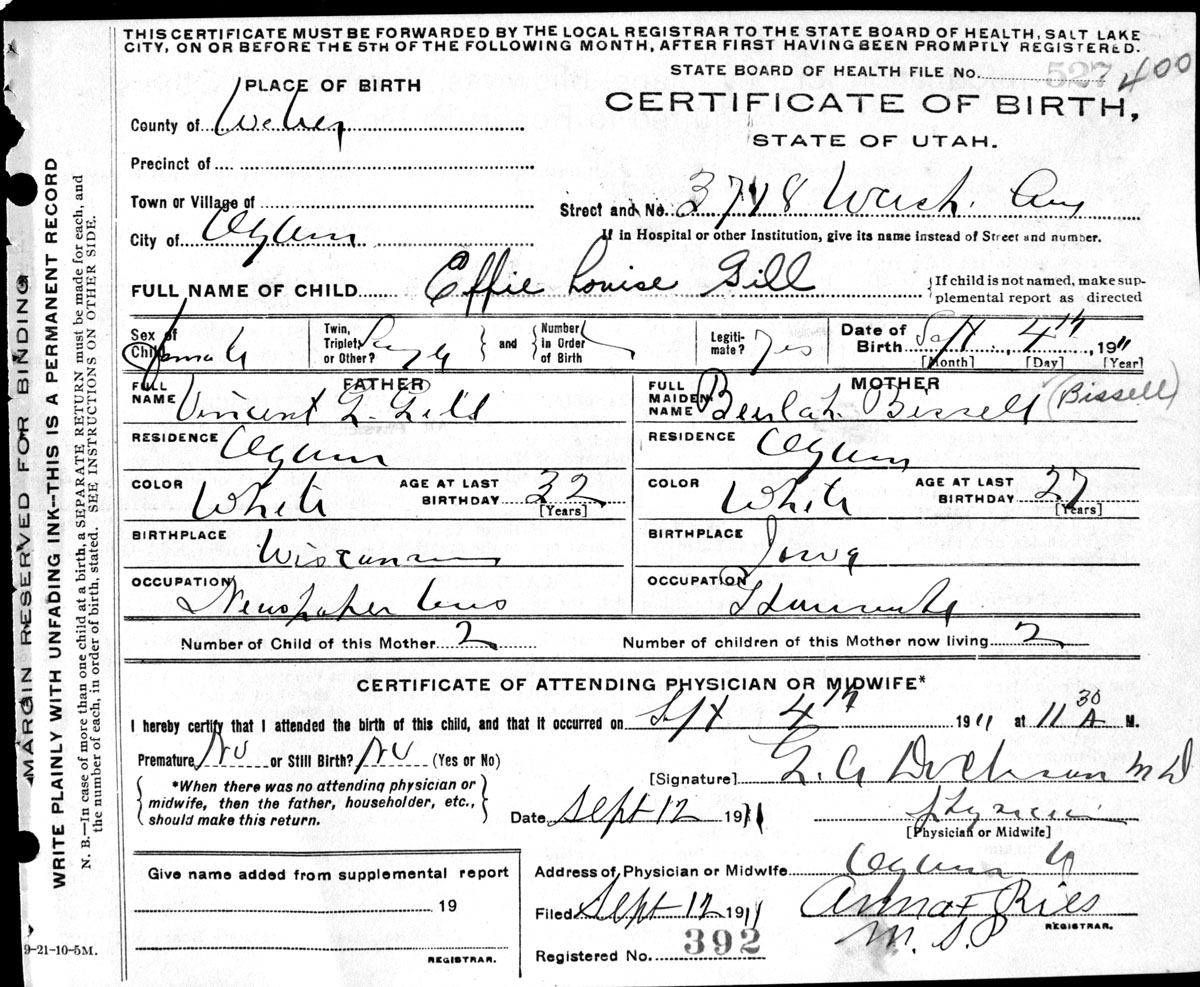 THIS CERTIFICATE MUST BE FORWARDED BY THE LOCAL REGISTRAR TO THE STATE BOARD OF HEALTH, SALT LAKE
CITY, ON OR BEFORE THE 5TH OF THE FOLLOWING MONTH, AFTER FIRST HAVING BEEN PROMPTLY REGISTERED.
STATE BOARD OF HEALTH FILE No. 527 400
PLACE OF BIRTH
CERTIFICATE OF BIRTH,
STATE OF UTAH.
County of Weber
Precinct of
Town or Village of
Street and No. 3718 Wash. Ave
City of Ogden
If in Hospital or other Institution, give its name instead of Street and number.
FULL NAME OF CHILD Effie Louise Gill
If child is not named, make sup-
plemental report as directed
Sex of Child Female
Twin, Triplet, or Other?
and
Number in Order of Birth
Legiti-mate? Yes
Date of Birth Sept 4th, 1911
[Month] [Day] [Year]
FATHER
FULL NAME Vincent G. Gill
MOTHER
FULL MAIDEN NAME Beulah Bissell (Bissell)
RESIDENCE Ogden
RESIDENCE Ogden
COLOR White AGE AT LAST BIRTHDAY 32 [Years]
COLOR White AGE AT LAST BIRTHDAY 27 [Years]
BIRTHPLACE Wisconsin
BIRTHPLACE Iowa
OCCUPATION Newspaper
OCCUPATION Housewife
Number of Child of this Mother 2
Number of children of this Mother now living 2
CERTIFICATE OF ATTENDING PHYSICIAN OR MIDWIFE*
I hereby certify that I attended the birth of this child, and that it occurred on Sept 4th 1911 at 11 30 A M.
Premature No or Still Birth? No (Yes or No)
[Signature] Dickson MD
*When there was no attending physician or
midwife, then the father, householder, etc.,
should make this return.
Date Sept 12 1911
Physician
[Physician or Midwife]
Give name added from supplemental report
19
REGISTRAR.
Address of Physician or Midwife Ogden U
Filed Sept 12 1911
Anna F Ries
M. S. P
REGISTRAR.
Registered No. 392
9-21-10-5M.
MARGIN RESERVED FOR BINDING
WRITE PLAINLY WITH UNFADING INK—THIS IS A PERMANENT RECORD
N. B.—In case of more than one child at a birth, a SEPARATE RETURN must be made for each, and
the number of each, in order of birth, stated. SEE INSTRUCTIONS ON OTHER SIDE.